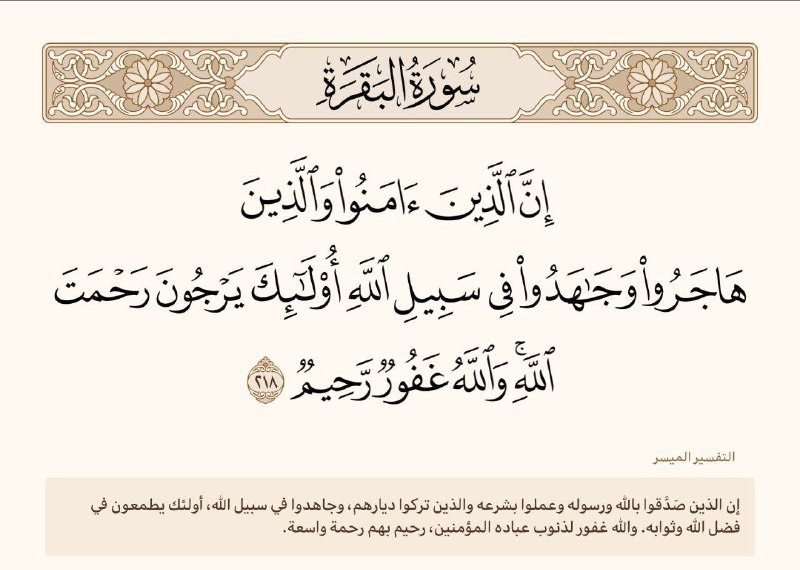 سُورَةُ البَقَرَةِ
إِنَّ ٱلَّذِينَ ءَامَنُوا۟ وَٱلَّذِينَ
هَاجَرُوا۟ وَجَـٰهَدُوا۟ فِى سَبِيلِ ٱللَّهِ أُو۟لَـٰٓئِكَ يَرْجُونَ رَحْمَتَ
ٱللَّهِ ۚ وَٱللَّهُ غَفُورٌ رَّحِيمٌ ٢١٨
التفسير الميسر
إن الذين صَدَّقوا بالله ورسوله وعملوا بشرعه والذين تركوا ديارهم، وجاهدوا في سبيل الله، أولئك يطمعون في
فضل الله وثوابه. والله غفور لذنوب عباده المؤمنين، رحيم بهم رحمة واسعة.